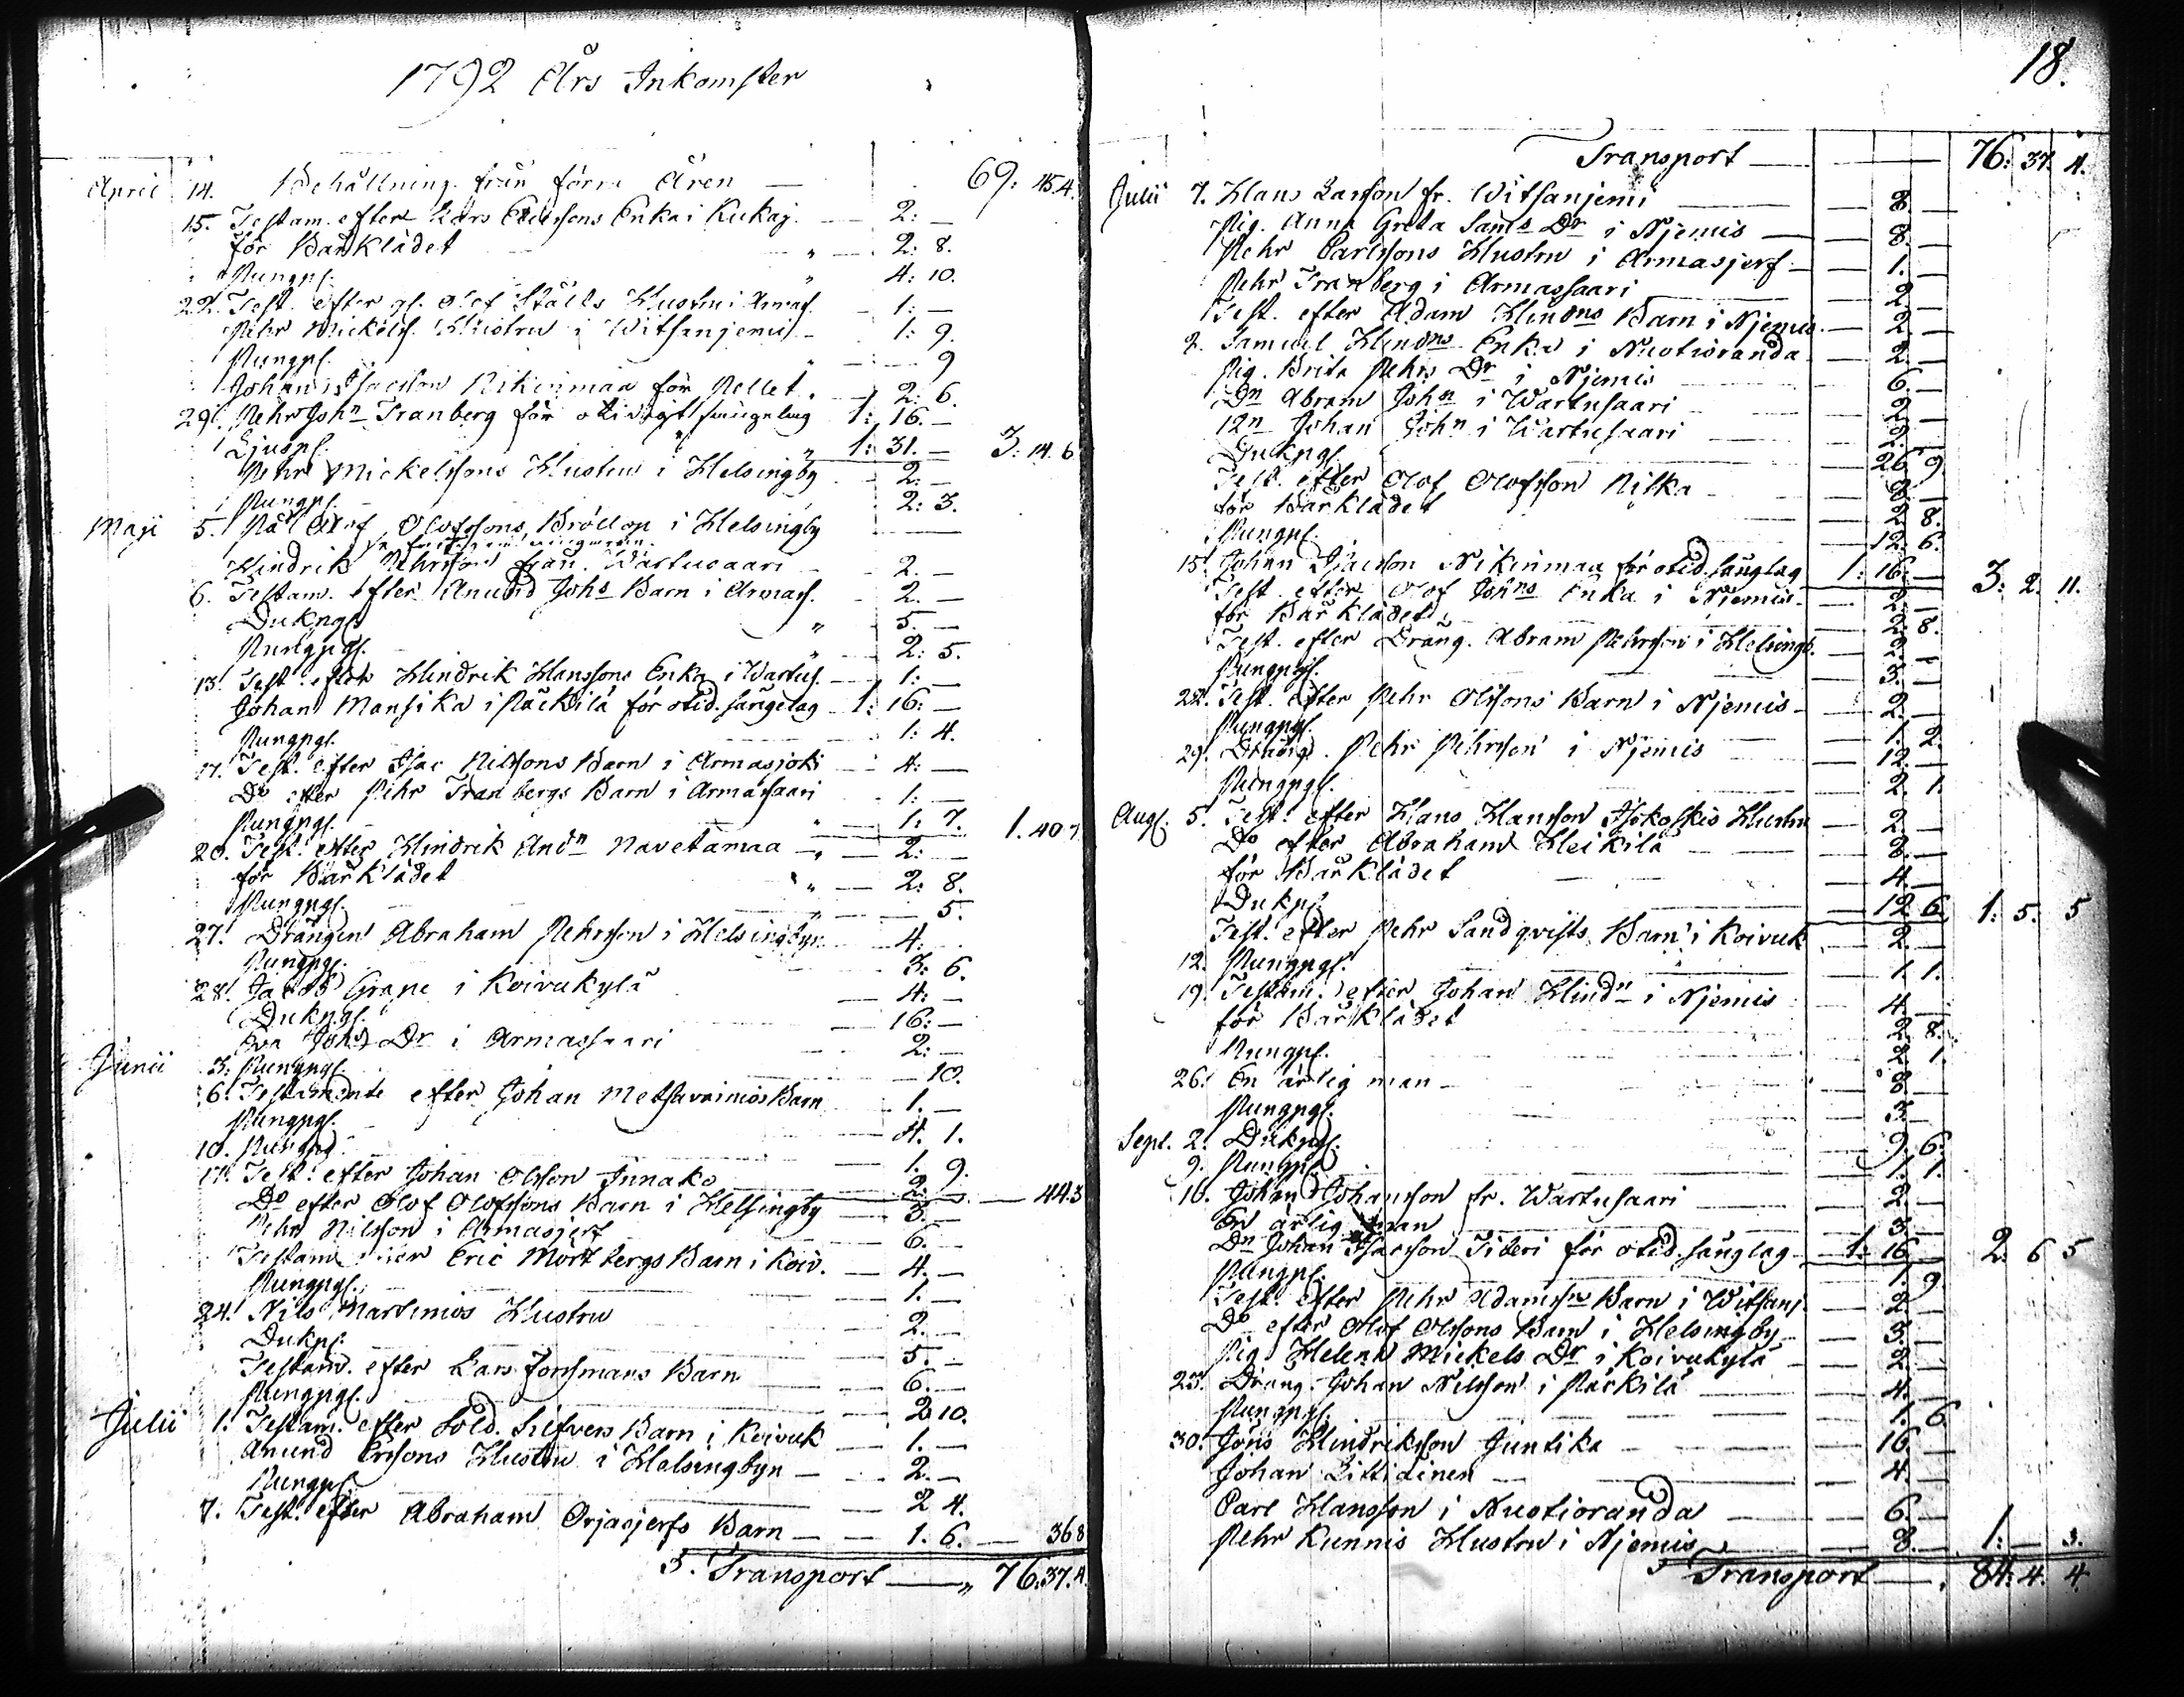 1792 Års Inkomster
April 14. Behållning från förra Åren — 69: 15. 4.
15. Testam. efter Lars Ericssons Enka i Kukaj. — 2: —
för Bårklädet " — 2: 8.
Pungpf. " 4: 10.
22. Test. efter gl. Olof Ståels Hustru i Armas. — 1: —
Pehr Mickelss. Hustru i Witsanjemi — 1: 9.
Pungpf. " — 9
Johan Isacsson Nikinmaa för Pellet " 2: 6.
29. Pehr John Tranberg för otidigt sängelag 1: 16. —
Ljuspf. " 1: 31. — 3: 14. 6
Pehr Mickelssons Hustru i Helsingby 2: —
Pungpf. — 2: 3.
Maji 5. På Olof Olofssons Bröllop i Helsingby —
Hindrik Pehrsson från Wartusaari — 2. —
6. Testam. efter Anund Johs Barn i Armass. — 2. —
Dukpgl. " 5. —
Pungpgl. " 2: 5.
13. Test. efter Hindrik Hanssons Enka i Wartus. — 1: —
Johan Mansika i Päckilä för otid. sängelag 1: 16: —
Pungpgl. 1: 4.
17. Test. efter Isac Nilssons Barn i Armasjoki — 4: —
Do efter Pehr Tranbergs Barn i Armassaari 1: —
Pungpgl. " 1: 7. 1. 40. 7
20. Test. efter Hindrik Andn Navetamaa — " — 2: —
för Bårklädet " — 2: 8.
Pungpgl. " — 5.
27. Drängen Abraham Pehrsson i Helsingbyn 4: —
Pungpgl. 3: 6.
28. Jacob Grape i Koivukylä — 4: —
Dukpgl. — 16: —
Eva Johs Dr i Armassaari 2: —
Junii 3. Pungpgl. — 10.
6. Testamente efter Johan Metsavainios Barn 1. —
Pungpgl. — 4. 1.
10. Pungpgl. — 1. 9.
17. Test. efter Johan Olsson Innako 2. — — 44. 3
Do efter Olof Olofssons Barn i Helsingby 3. —
Pehr Nilsson i Armasjerf — 6. —
Testam. efter Eric Mortbergs Barn i Koiv. — 4. —
Pungpgl. — 1. —
24. Nils Martinios Hustru 2. —
Dukpf. — 5. —
Testam. efter Lars Forssmans Barn — 6. —
Pungpgl. — 2 10.
Julii 1. Testam. efter Sold. Silfvers Barn i Koivuk — 1. —
Anund Erssons Hustru i Helsingbyn — 2. —
Pungpf. — 2 4.
7. Test. efter Abraham Orjasjerfs Barn — 1. 6. — 36 8
Transport — " 76. 37. 4.
18.
Transport — 76: 37. 4.
Julii 7. Hans Larsson fr. Witsanjemi — 8. —
Pig. Anna Greta Sams Dr i Njemis — 8. —
Pehr Carlssons Hustru i Armasjerf — 1. —
Pehr Tranberg i Armassaari 2. —
Test. efter Adam Hindns Barn i Njemis — 2. —
Samuel Hindns Enka i Nuotioranda — 2. —
Pig. Brita Pehrs Dr i Njemis — 6. —
Dn Abram John i Wartusaari — 2. —
Dn Johan John i Wartusaari — 2. —
Dukpgl. — 26 9
Test. efter Olof Olofsson Niska —
för Bårklädet — 2 8.
Pungpf. — 12. 6.
15. Johan Isacsson Nikinmaa för otid. sänglag 1: 16. — 3: 2. 11.
Test. efter Olof Johns Enka i Njemis — 2. —
för Bårklädet — 2. 8.
Test. efter Dräng. Abram Pehrsson i Helsingb. — 2. —
Pungpgl. — 3. —
22. Test. efter Pehr Olssons Barn i Njemis — 2. —
Pungpgl. — 1. 2.
29. Dräng. Pehr Pehrsson i Njemis — 12. —
Pungpgl. — 2. 1.
Augs. 5. Test. efter Hans Hansson Isokoskis Hustru — 2. —
Do efter Abraham Heikilä — 8. —
för Bårklädet — 4. —
Dukpf. — 12 6. 1: 5. 5
Test. efter Pehr Sandqvists Barn i Koivuk — 2. —
12. Pungpgl. — 1. 1.
19. Testam. efter Johan Hindn i Njemis 4. —
för Bårklädet — 2 8.
Pungpf. — 2. 1.
26. En ärlig man — 8. —
Pungpgl. 3. —
Sept. 2. Dukpgl. 9. 6.
9. Pungpgl. — 1. 1.
16. Johan Johansson fr. Wartusaari — 2. —
En ärlig man — 3. —
Dn Johan Isacsson Tiberi för otid. sänglag — 1: 16 2. 6 5
Pungpf. 1. 9
Test. efter Pehr Adamssns Barn i Witsanj — 2. —
Do efter Olof Olssons Barn i Helsingby — 3. —
Pig. Helena Mickels Dr i Koivukylä — 2. —
23. Dräng. Johan Nilsson i Päckilä — 4. —
Pungpgl. — 1. 6.
30. Jöns Hindriksson Juntika — 16. —
Johan Littiäinen — 4. —
Carl Hansson i Nuotioranda — 6. —
Pehr Kunnis Hustru i Njemis — 8. — 1: — 3.
Transport — 84: 4. 4